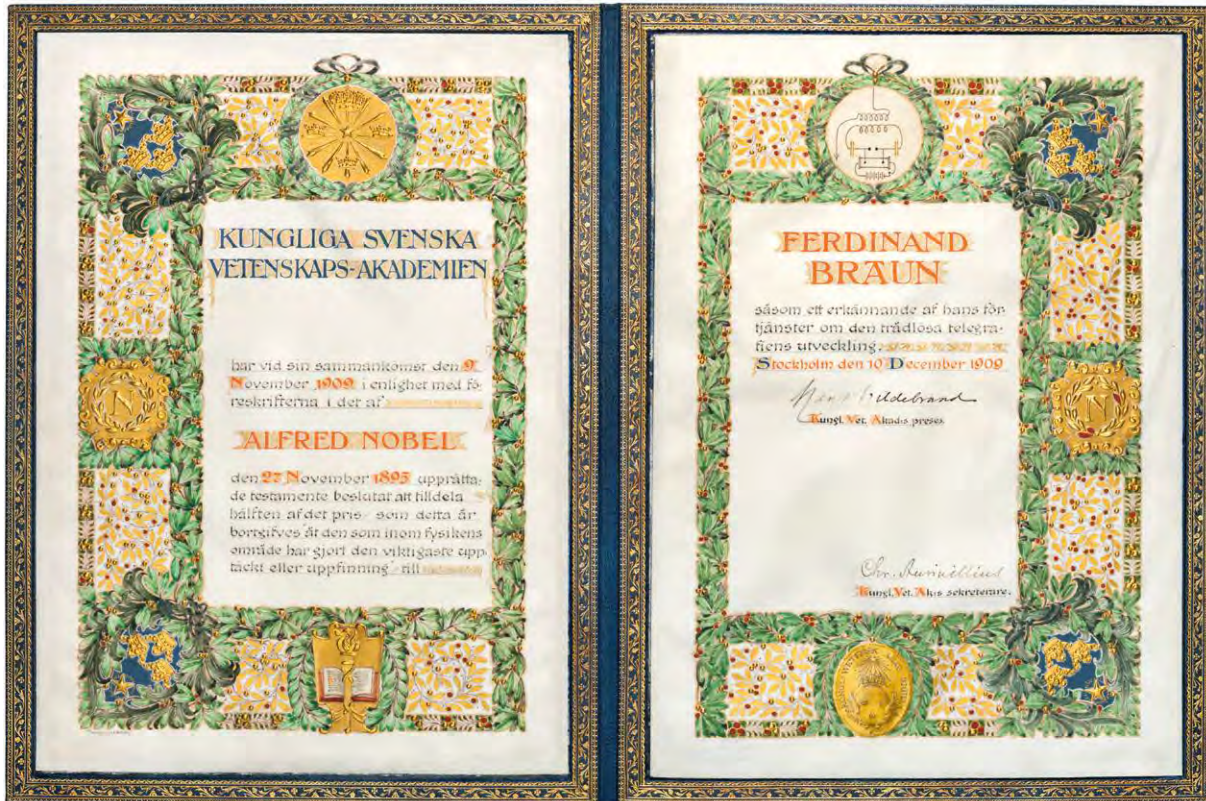 KUNGLIGA SVENSKA
VETENSKAPS-AKADEMIEN
har vid sin sammankomst den 9
November 1909 i enlighet med fö-
reskrifterna i det af
ALFRED NOBEL
den 27 November 1895 upprätta-
de testamente beslutat att tilldela
hälften af det pris som detta år
bortgifves åt den som inom fysikens
område har gjort den viktigaste upp-
täckt eller uppfinning till
N
FERDINAND
BRAUN
såsom ett erkännande af hans för-
tjänster om den trådlösa telegra-
fiens utveckling.
Stockholm den 10 December 1909
Hildebrand
Kungl. Vet. Akad:s preses
Chr. Aurivillius
Kungl. Vet. Ak:s sekreterare.
N